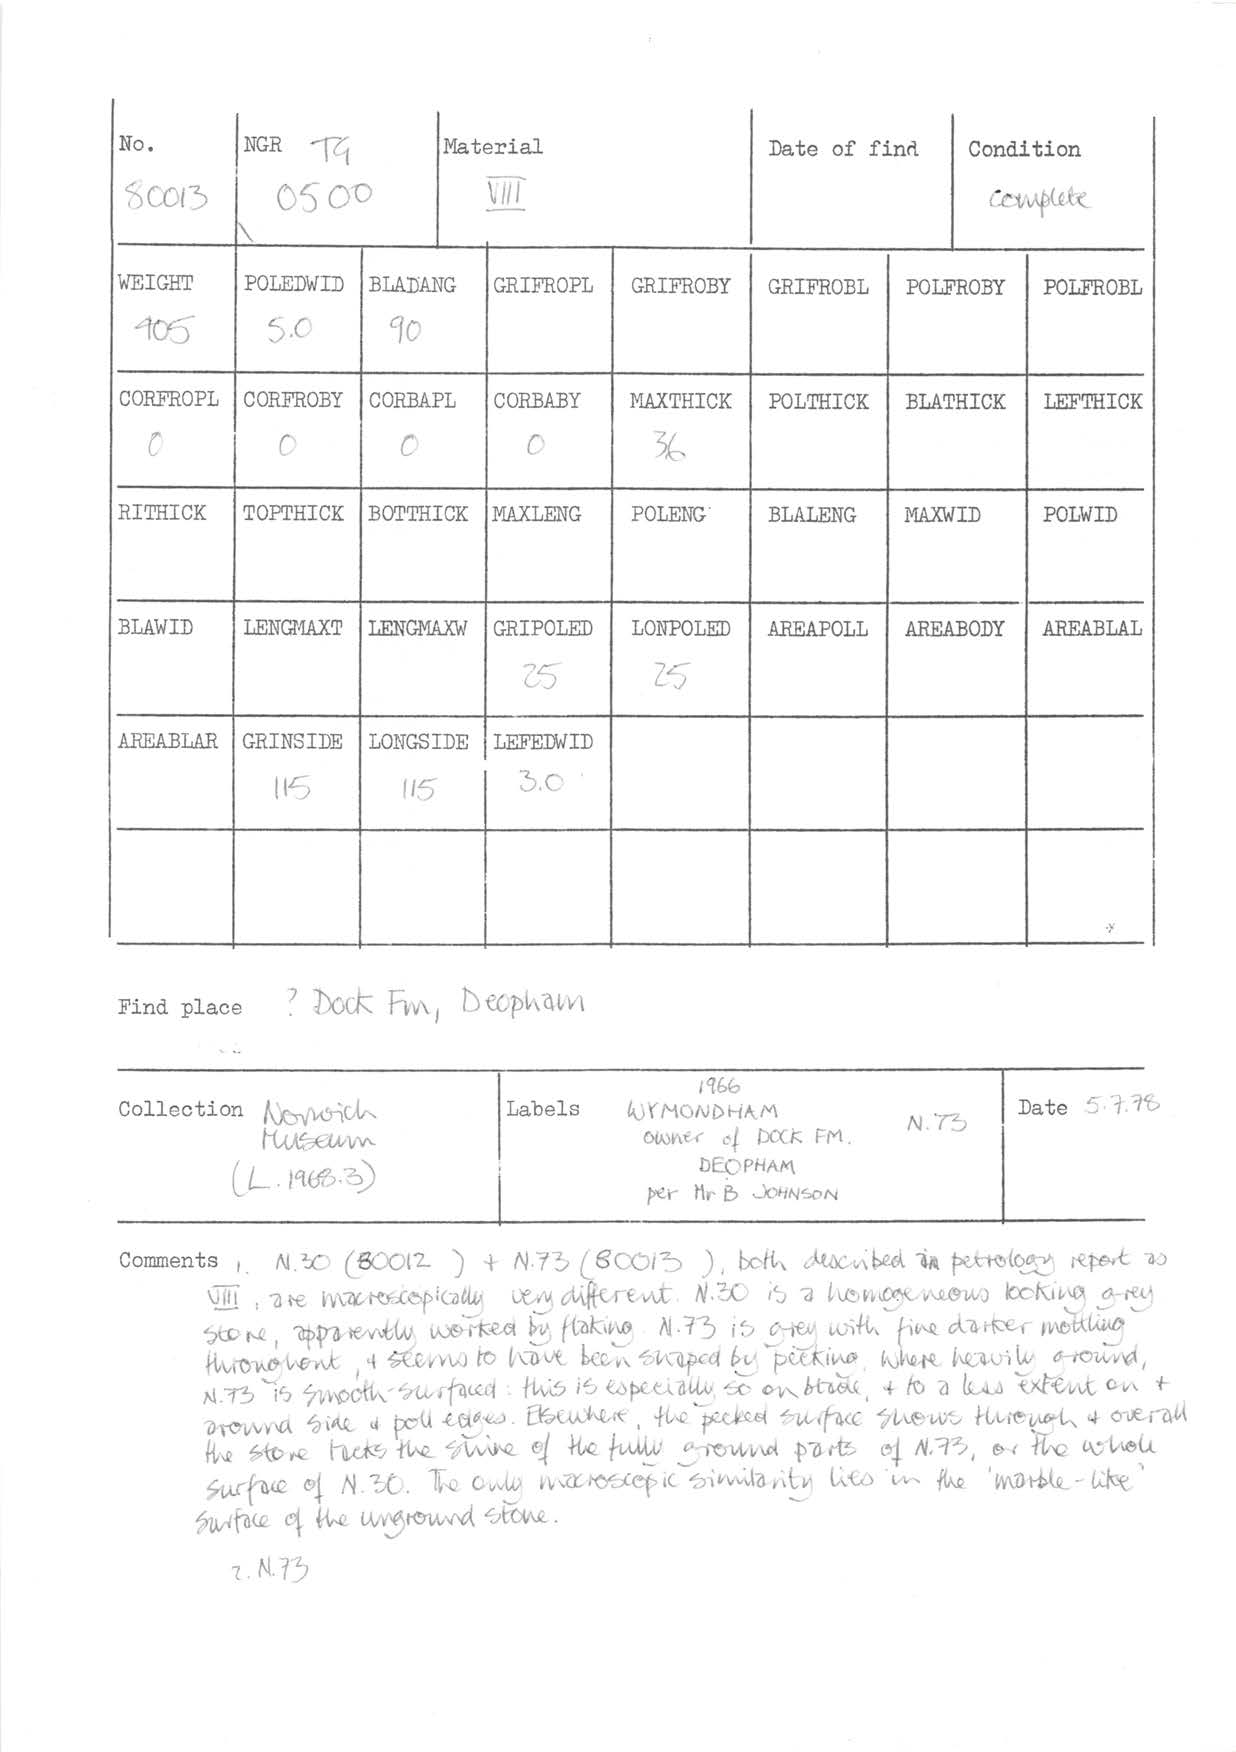 No. NGR TG Material Date of find Condition
80013 0500 VIII complete
WEIGHT POLEDWID BLADANG GRIFROPL GRIFROBY GRIFROBL POLFROBY POLFROBL
405 5.0 90
CORFROPL CORFROBY CORBAPL CORBABY MAXTHICK POLTHICK BLATHICK LEFTHICK
0 0 0 0 36
RITHICK TOPTHICK BOTTHICK MAXLENG POLENG BLALENG MAXWID POLWID
BLAWID LENGMAXT LENGMAXW GRIPOLED LONPOLED AREAPOLL AREABODY AREABLAL
25 25
AREABLAR GRINSIDE LONGSIDE LEFEDWID
115 115 3.0
Find place ? Dock Fm, Deopham
Collection Norwich
Museum
(L.1968.3)
Labels 1966
WYMONDHAM
owner of DOCK FM.
DEOPHAM
per Mr B JOHNSON
N.73
Date 5.7.78
Comments 1. N.30 (80012 ) + N.73 (80013 ), both described in petrology report as
VIII, are macroscopically very different. N.30 is a homogeneous looking grey
stone, apparently worked by flaking. N.73 is grey with fine darker mottling
throughout, + seems to have been shaped by pecking. Where heavily ground,
N.73 is smooth-surfaced: this is especially so on blade, + to a less extent on +
around side + poll edges. Elsewhere, the pecked surface shows through + overall
the stone lacks the shine of the fully ground parts of N.73, or the whole
surface of N.30. The only macroscopic similarity lies in the 'marble-like'
surface of the unground stone.
2. N.73